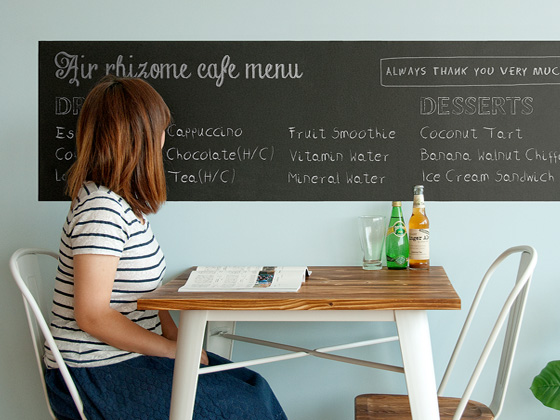 Air rhizome cafe menu
ALWAYS THANK YOU VERY MUC
DESSERTS
Cappuccino
Fruit Smoothie
Coconut Tart
Chocolate(H/C)
Vitamin Water
Banana Walnut Chiff
Tea(H/C)
Mineral Water
Ice Cream Sandwich